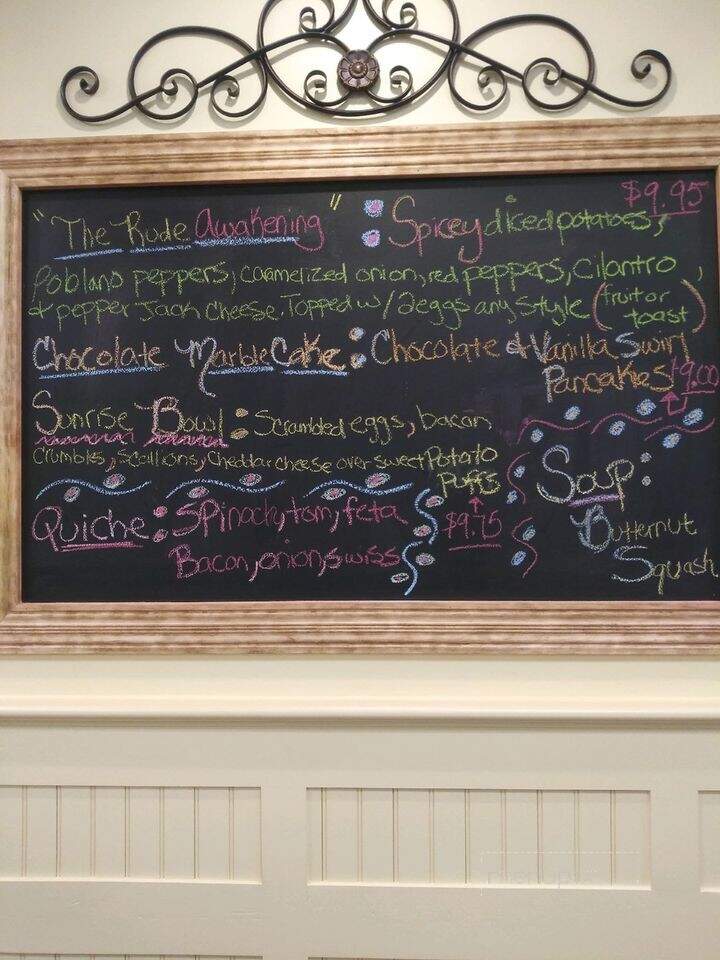 $9.95
"The Rude Awakening": Spicey diced potatoes,
Poblano peppers, carmelized onion, red peppers, Cilantro,
& pepper Jack cheese. Topped w/ 2eggs any style (fruit or
toast)
Chocolate Marble Cake: Chocolate & Vanilla Swirl
Pancakes $9.00
Sunrise Bowl: Scrambled eggs, bacon
crumbles, scallions, Cheddar cheese over sweet Potato
Puffs
$9.75
Quiche: Spinach, tom, feta
Bacon, onion, swiss
Soup:
Butternut
Squash